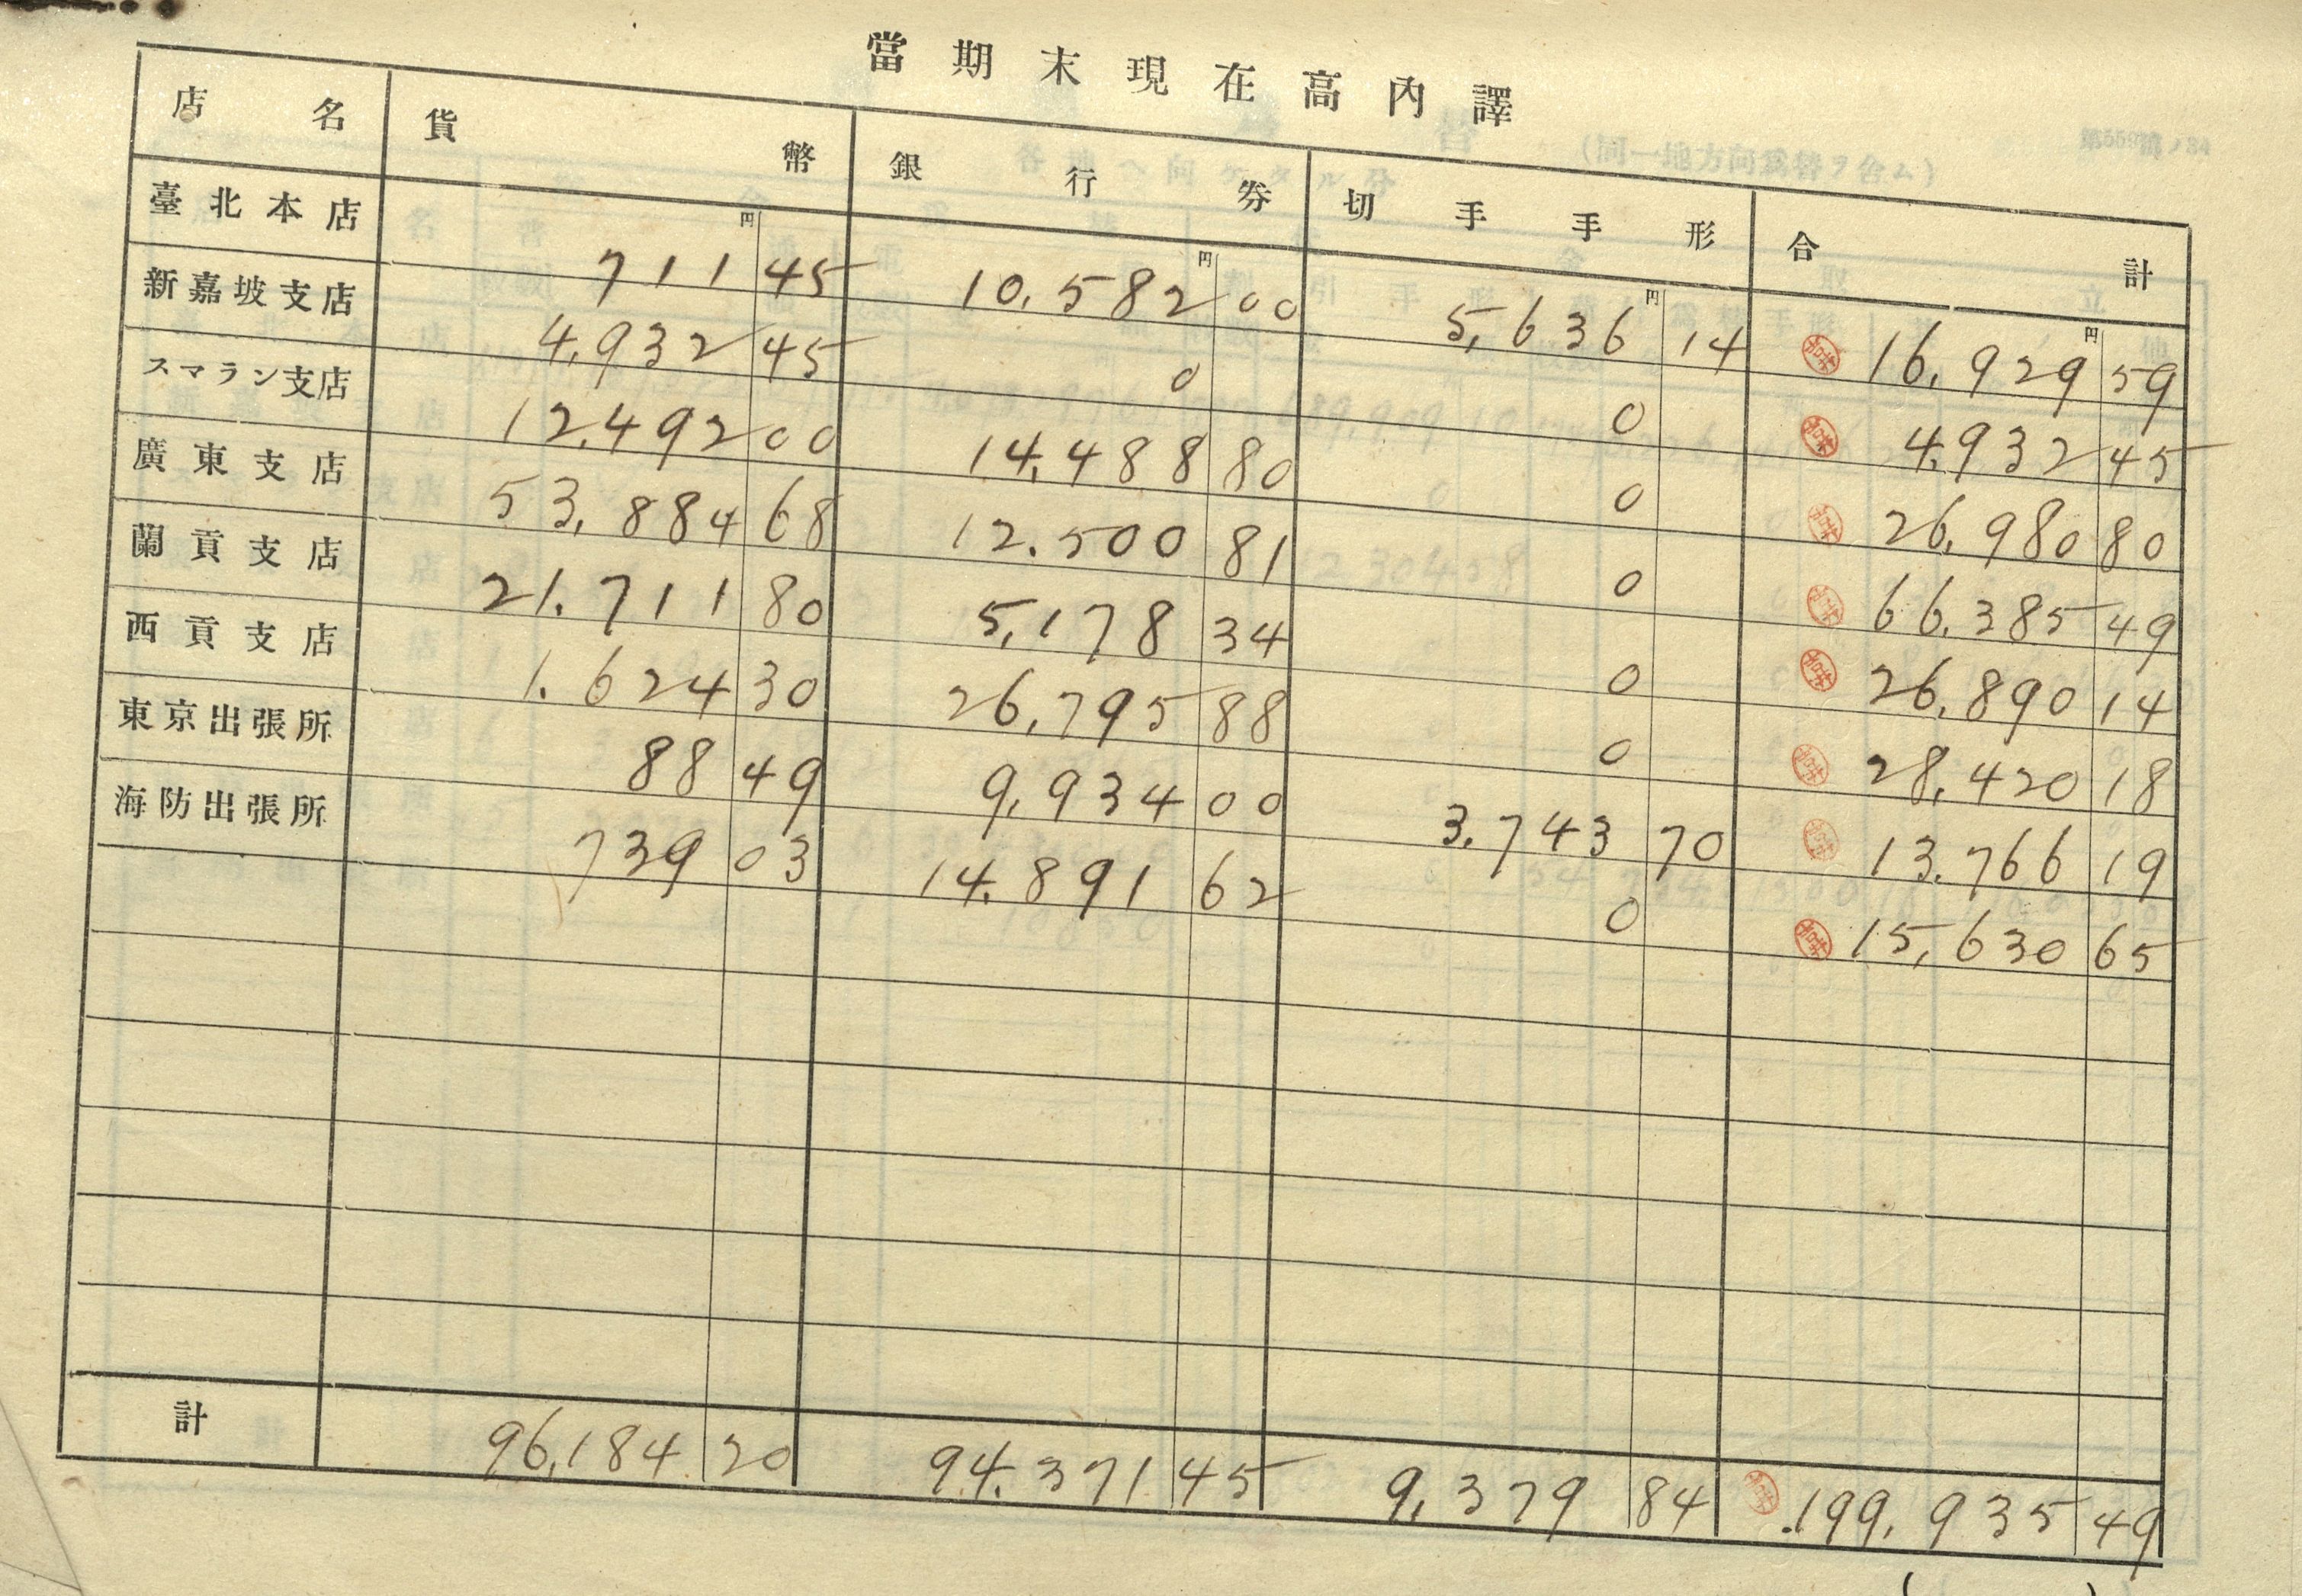 當期末現在高內譯
店名 貨幣 銀行券 切手手形 合計
円 円 円 円
臺北本店 711 45 10,582 00 5,636 14 16,929 59
新嘉坡支店 4,932 45 0 0 4,932 45
スマラン支店 12,492 00 14,488 80 0 26,980 80
廣東支店 53,884 68 12,500 81 0 66,385 49
蘭貢支店 21,711 80 5,178 34 0 26,890 14
西貢支店 1,624 30 26,795 88 0 28,420 18
東京出張所 88 49 9,934 00 3,743 70 13,766 19
海防出張所 739 03 14,891 62 0 15,630 65
計 96,184 20 94,371 45 9,379 84 199,935 49